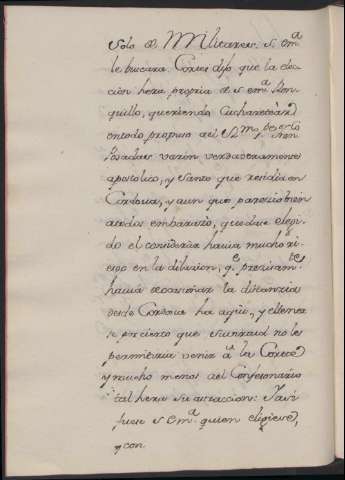 solo de Militares. S. em.ª
le buscara. Cortes dijo que la elec-
cion hera propria de S. em.ª Ron-
quillo, queriendo Cucharetear
en todo propuso al S.
Posadas varon verdaderamente
apostolico, y Santo que residia en
Cordova, y aun que parecio bien
a todos embarazò, que dase elegi-
do el considerar havia mucho ri-
esgo en la dilacion, q.e precisam.te
havia de causar la distancia
desde Cordova ha aqui, y el tener-
se por cierto que su virtud no le
permitiria venir à la Corte
y mucho menos al Confesonario
tal hera su atraccion: Assi
fuese S Em.ª quien eligiese,
y con